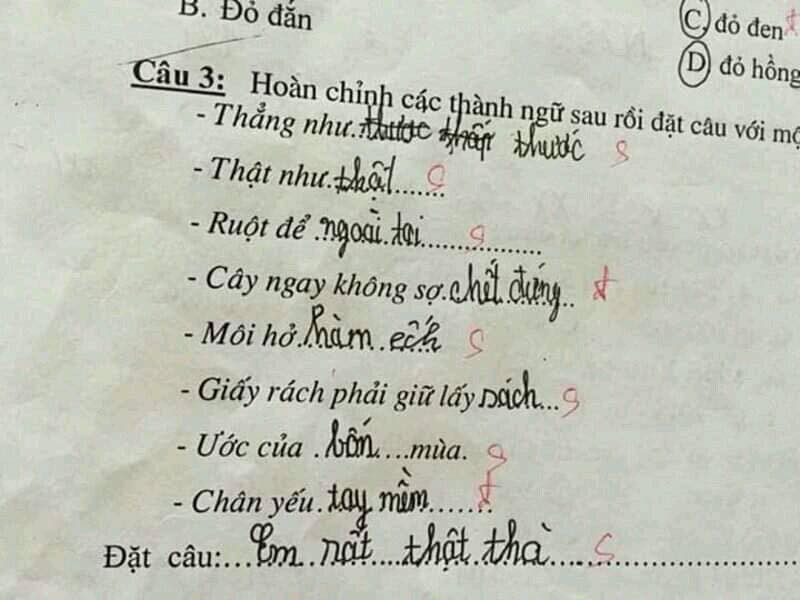 B. Đỏ đắn
C. đỏ đen
D. đỏ hồng
Câu 3: Hoàn chỉnh các thành ngữ sau rồi đặt câu với
- Thẳng như.. thước S
- Thật như.thật....... S
- Ruột để.ngoài.tai................. S
- Cây ngay không sợ.chết.đứng.. Đ
- Môi hở.hàm.ếch S
- Giấy rách phải giữ lấy sách... S
- Ước của .bốn....mùa. S
- Chân yếu.tay mềm....... Đ
Đặt câu:...Em rất....thật thà.................... S